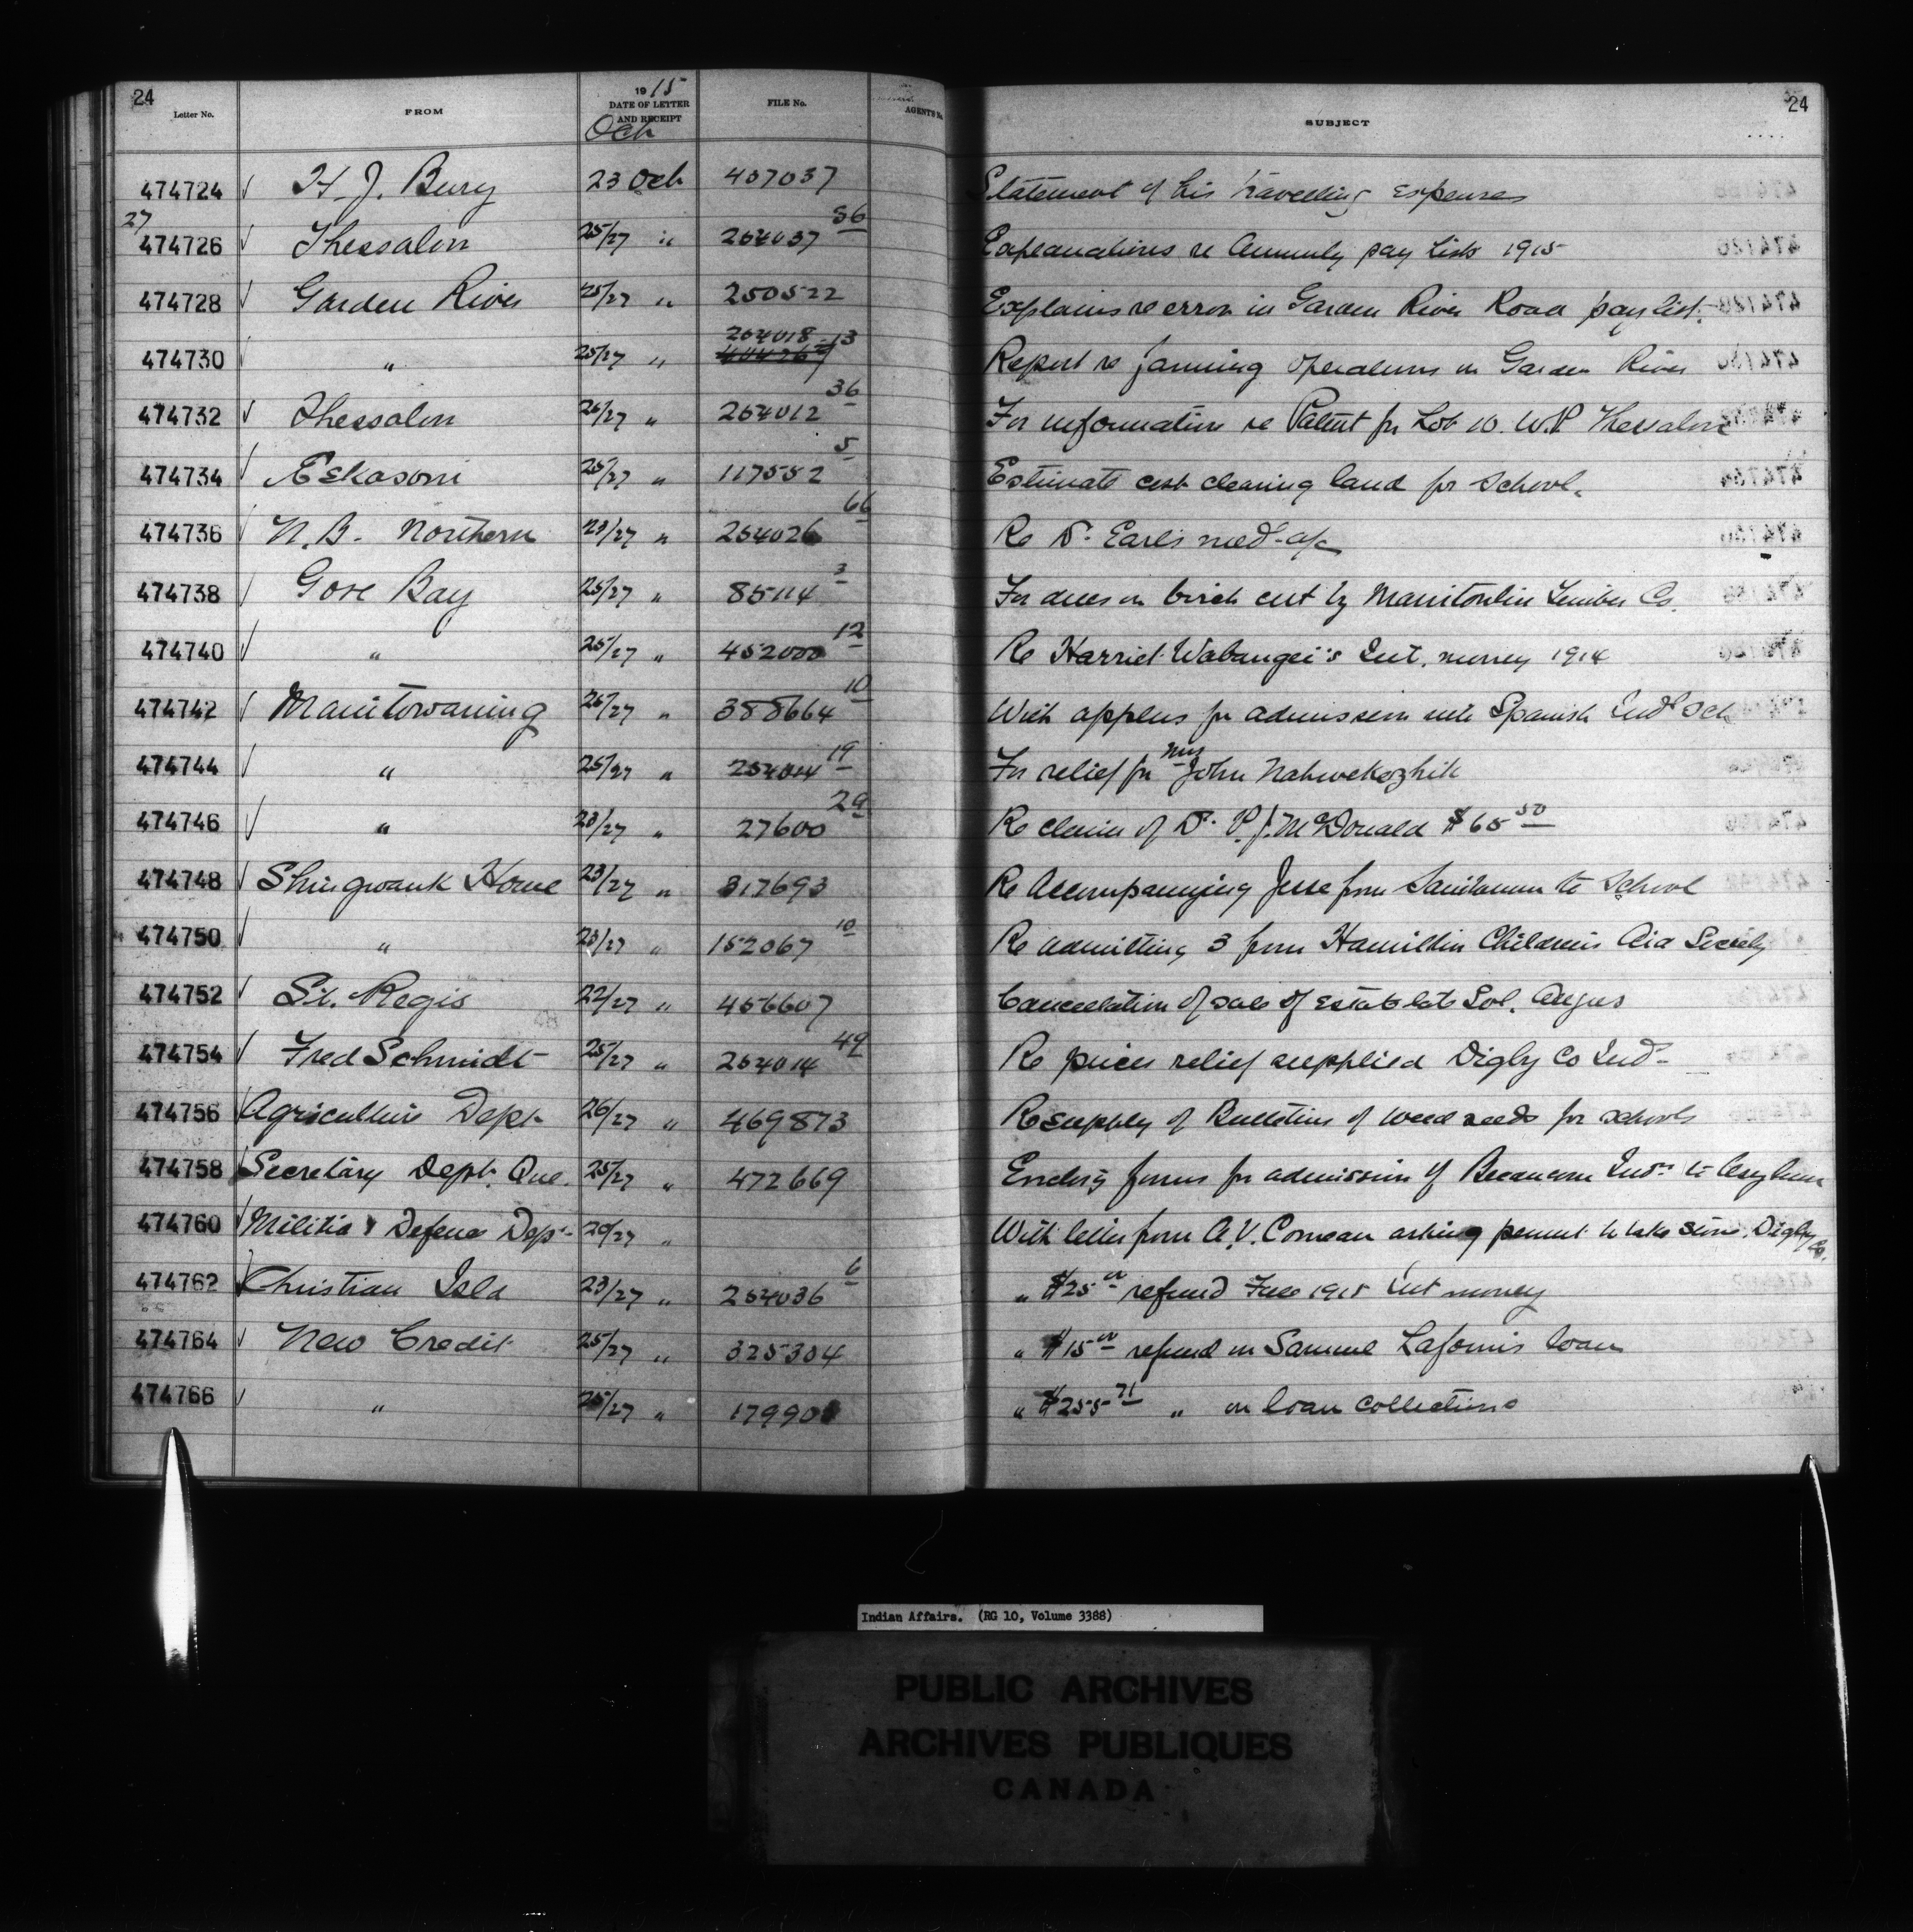 24
Letter No. FROM 1915 DATE OF LETTER AND RECEIPT FILE No. AGENT'S No. SUBJECT 24
Oct
474724 ✓ H. J. Bury 23 Oct 407037 Statement of his travelling expenses
27
474726 ✓ Thessalon 25/27 " 254037 36 Explanations re Annuity pay lists 1915
474728 ✓ Garden River 25/27 " 250522 Explains re error in Garden River Road pay list.
474730 " 25/27 " 254018 13 Report re farming operations on Garden River
474732 ✓ Thessalon 26/27 " 254012 36 For information re Patent for Lot 10. W.P Thessalon
474734 ✓ Eskasoni 25/27 " 117552 5 Estimate cost clearing land for School.
474736 ✓ N.B. Northern 23/27 " 254026 66 Re Dr. Earl's med. a/c
474738 ✓ Gore Bay 25/27 " 85114 3 For dues on birch cut by Manitoulin Lumber Co.
474740 ✓ " 25/27 " 452000 12 Re Harriet Wabangei's Int. money 1914
474742 ✓ Manitowaning 26/27 " 388664 10 With applns for admission into Spanish Indl Sch
474744 ✓ " 25/27 " 254014 19 For relief for Mrs John Nahwekezhik
474746 ✓ " 23/27 " 27600 29 Re claim of Dr. P. J. McDonald $65 50
474748 ✓ Shingwauk Home 23/27 " 317693 Re Accompanying Jesse from Sanitarium to School
474750 ✓ " 23/27 " 152067 10 Re admitting 3 from Hamilton Children's Aid Society
474752 ✓ St. Regis 22/27 " 456607 Cancellation of sale of Estate late Sol. Angus
474754 ✓ Fred Schmidt 25/27 " 254014 49 Re prices relief supplied Digby Co Inds
474756 Agriculture Dept 26/27 " 469873 Re supply of Bulletins of weed seeds for schools
474758 Secretary Dept. Que. 25/27 " 472669 Enclos'g forms for admission of Becancour Inds to Asylum
474760 ✓ Militia & Defence Dept 20/27 " With letter from A. V. Comeau asking permit to take stone. Digby Co.
474762 Christian Isld 23/27 " 254036 6 " $25 00 refund 1915 Int money
474764 ✓ New Credit 25/27 " 325304 " $15 00 refund on Samuel Laform's loan
474766 ✓ " 25/27 " " $255 71 " on loan collections
Indian Affairs. (RG 10, Volume 3388)
PUBLIC ARCHIVES
ARCHIVES PUBLIQUES
CANADA